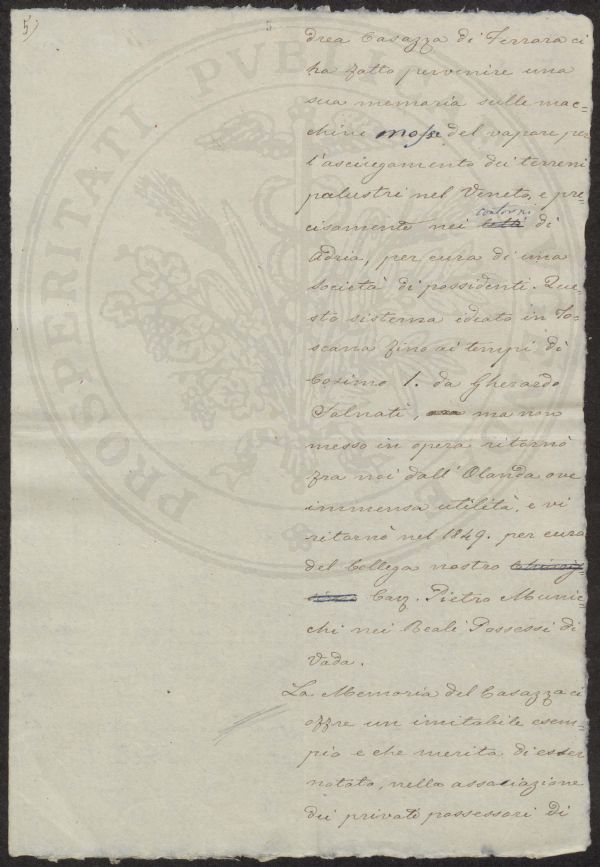 5)
5
drea Casazza di Ferrara ci
ha fatto pervenire una
sua memoria sulle mac=
chine mosse del vapore per
l'asciugamento dei terreni
palustri nel Veneto, e pre=
contorni
cisamente nei città di
Adria, per cura di una
società di possidenti. Que=
sto sistema ideato in To=
scana fino ai tempi di
Cosimo I. da Gherardo
Salviati, ma non
messo in opera ritornò
fra noi dall'Olanda ove
immensa utilità, e vi
ritornò nel 1849. per cura
del Collega nostro
Cav. Pietro Munic=
chi nei Reali Possessi di
Vada.
La Memoria del Casazza ci
offre un imitabile esem=
pio e che merita di esser
notato, nella associazione
dei privati possessori di
PROSPERITATI PVBLICAE